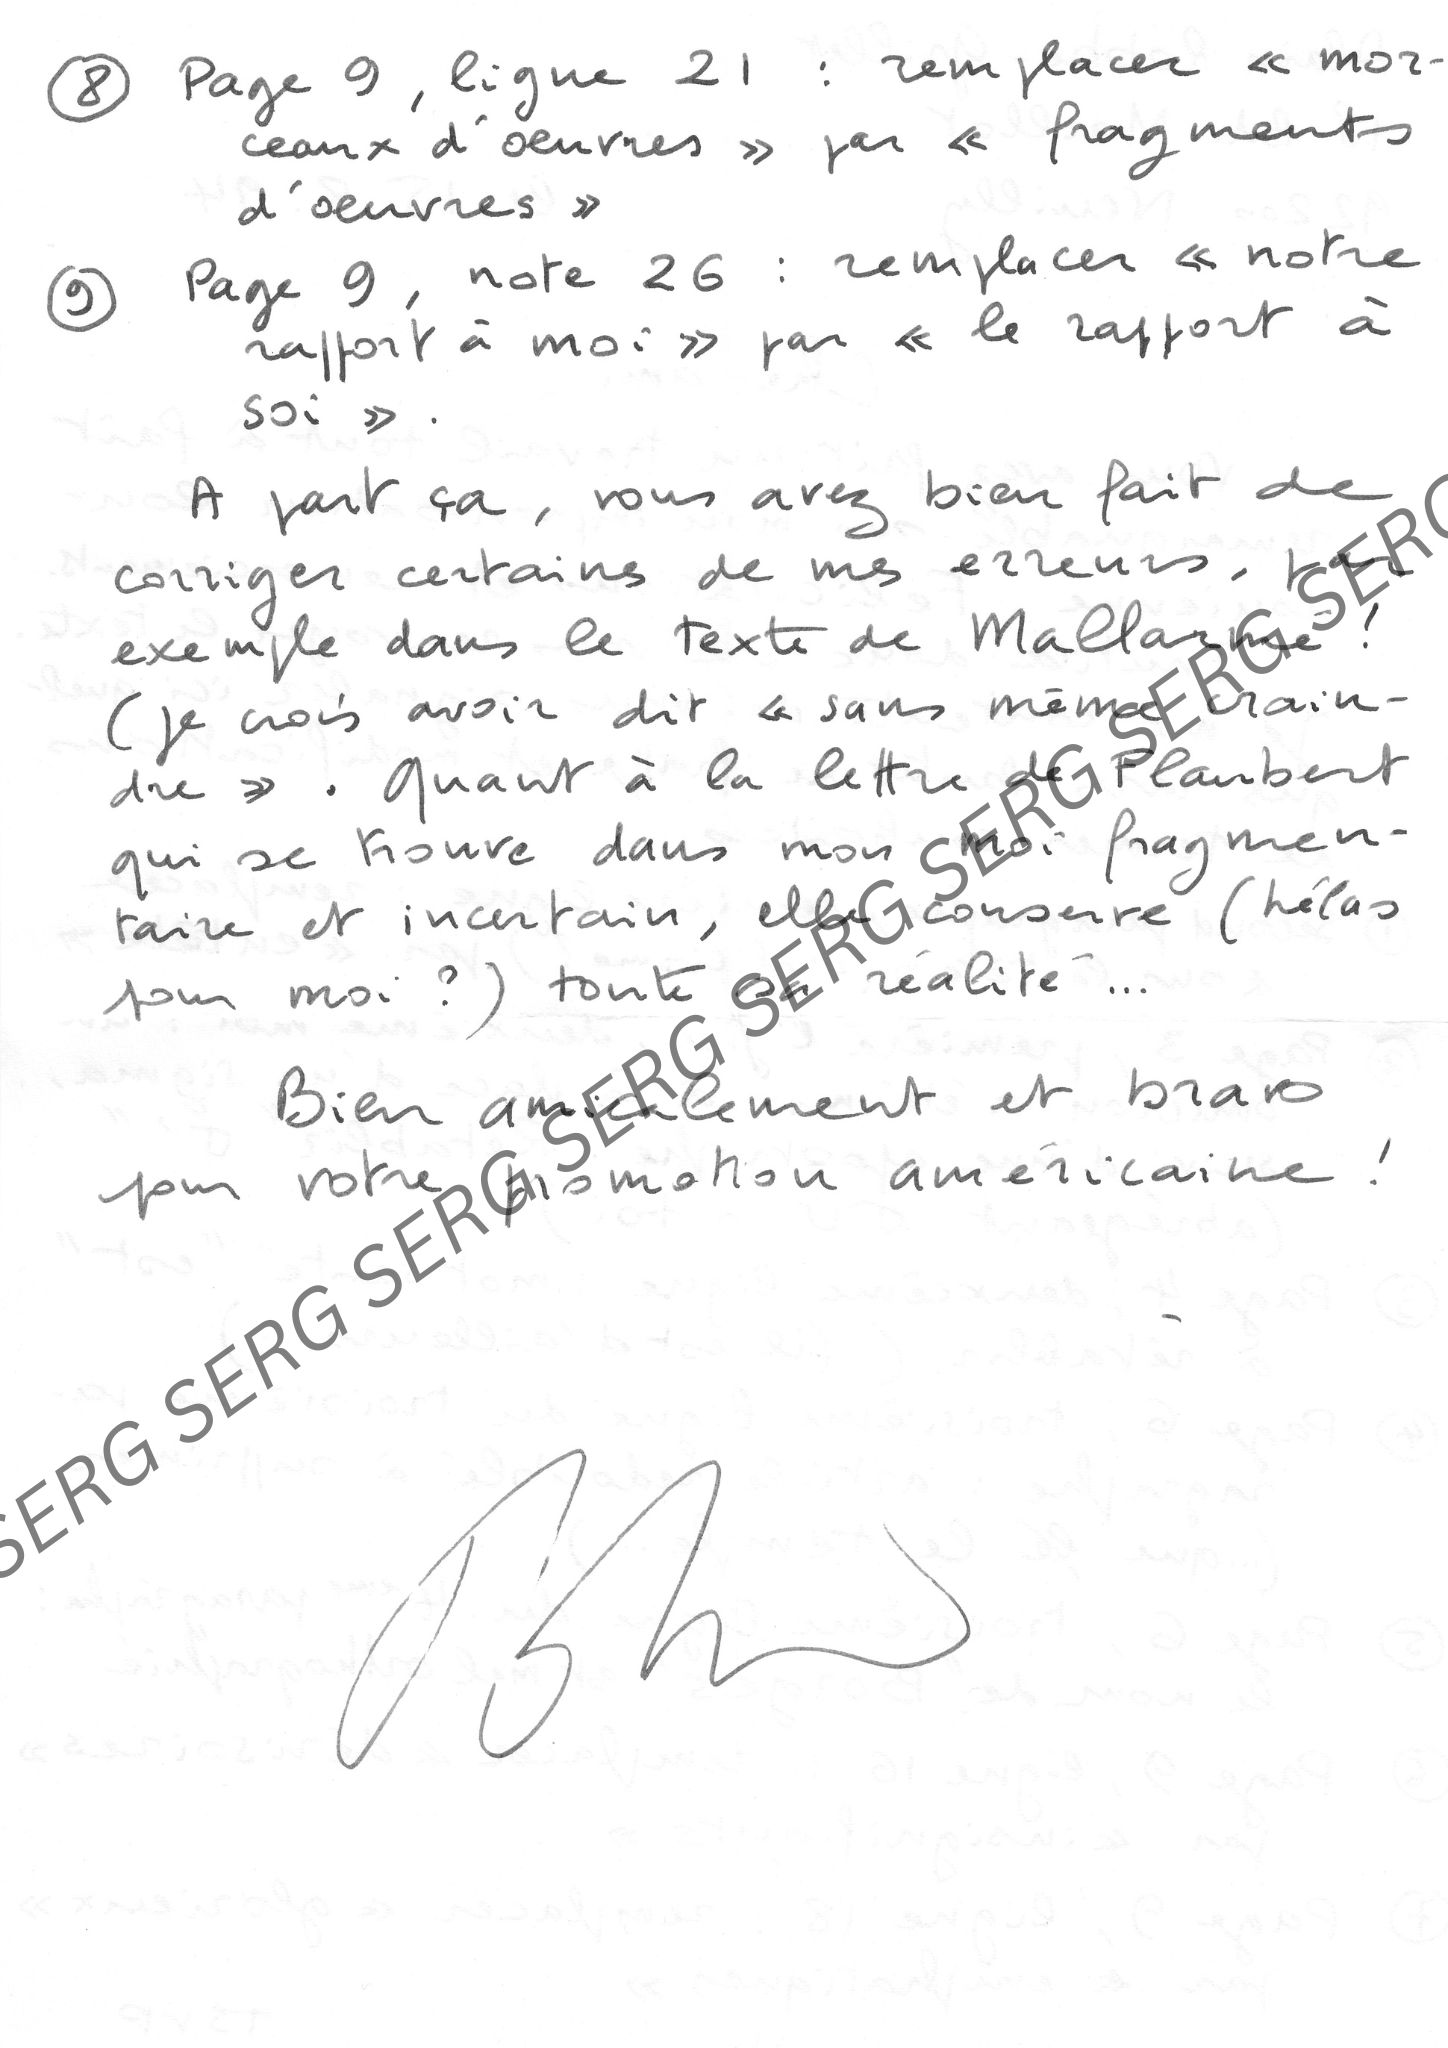 ⑧ Page 9, ligne 21 : remplacer « mor-
ceaux d'oeuvres » par « fragments
d'oeuvres »
⑨ Page 9, note 26 : remplacer « notre
rapport à moi » par « le rapport à
soi ».
A part ça, vous avez bien fait de
corriger certaines de mes erreurs, par
exemple dans le texte de Mallarmé !
(je crois avoir dit « sans même crain-
dre ». Quant à la lettre de Flaubert
qui se trouve dans mon moi fragmen-
taire et incertain, elle conserve (hélas
pour moi ?) toute sa réalité...
Bien amicalement et bravo
pour votre promotion américaine !
SERG SERG SERG SERG SERG SERG SERG SERG SERG SERG